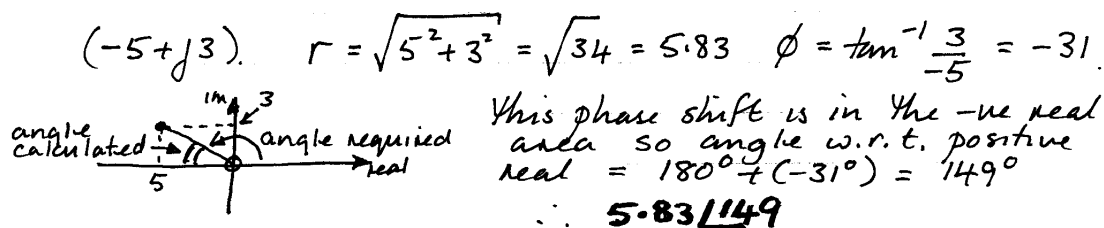 (-5+j3). r = √5²+3² = √34 = 5.83 ϕ = tan⁻¹ 3/-5 = -31.
Im 3
angle calculated
angle required
real
5
This phase shift is in the -ve real
area so angle w.r.t. positive
real = 180°+(-31°) = 149°
∴ 5.83∠149